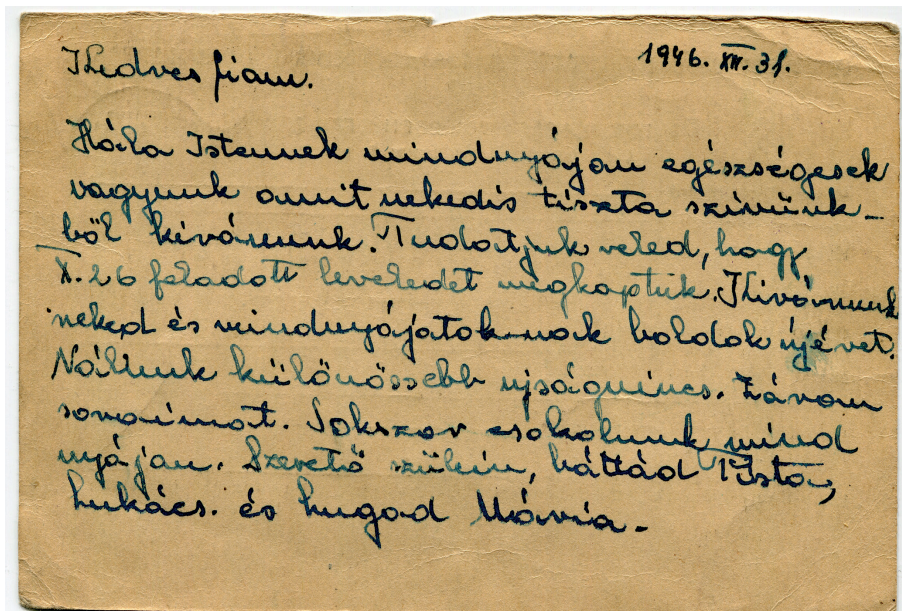 Kedves fiam. 1946. XII. 31.
Hála Istennek mindnyájan egészségesek
vagyunk amit nekedis tiszta szivünk-
ből kivánunk. Tudatjuk veled, hogy
X. 26 feladott leveledet megkaptuk. Kivánunk
neked és mindnyájatok-nak boldok újévet.
Nállunk külömössebb ujságnincs. Zárom
soraimat. Sokszor csokolunk mind
nyájan. Szerető szülein, báttád Pista,
Lukács. és hugod Mária-